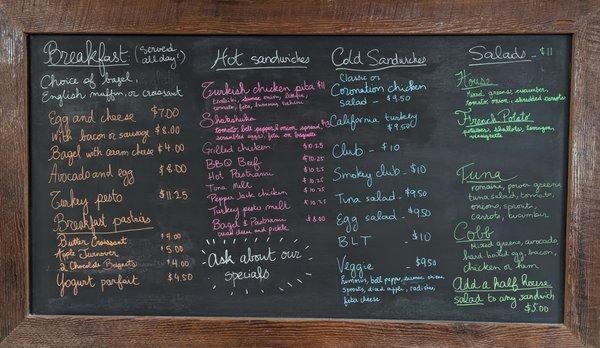 Breakfast (served all day!)
Choice of bagel,
English muffin, or croissant
Egg and cheese $7.00
with bacon or sausage $8.00
Bagel with cream cheese $4.00
Avocado and egg $8.00
Turkey pesto $11.25
Breakfast pastries
Butter Croissant $4.00
Apple Turnover $5.00
2 Chocolate Beignets $4.00
Yogurt parfait $4.50
Hot sandwiches
Turkish chicken pita $11
tzatziki, sumac onion,
tomato, feta, tahini
Shakshuka
tomato, bell pepper, & onion, spread
scrambled eggs, feta on baguette
Grilled chicken $10.25
BBQ Beef $10.25
Hot Pastrami $10.25
Tuna Melt $10.25
Pepper Jack chicken $10.25
Turkey pesto melt $10.25
Bagel & Pastrami $8.00
cream cheese and pickle
Ask about our
specials
Cold Sandwiches
Classic or
Coronation chicken
salad - $9.50
California turkey
$9.50
Club - $10
Smokey club - $10
Tuna salad - $9.50
Egg salad - $9.50
BLT - $10
Veggie $9.50
hummus, bell pepper, sumac onion,
sprouts, diced apple, radishes,
feta cheese
Salads - $11
House
Mixed greens, cucumber,
tomato, onion, shredded carrots
French Potato
potatoes, shallots, tarragon,
vinaigrette
Tuna
romaine, power greens
tuna salad, tomato,
onions, sprouts,
carrots, cucumber
Cobb
Mixed greens, avocado,
hard boiled egg, bacon,
chicken or ham
Add a half house
salad to any sandwich
$5.00